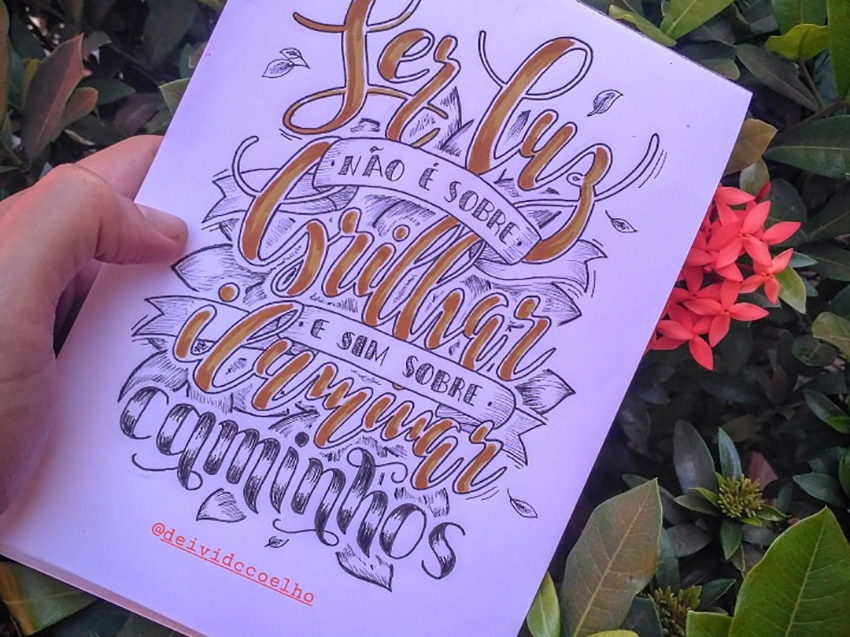 Ser luz
NÃO É SOBRE
brilhar
E SIM SOBRE
iluminar
caminhos
@deividccoelho